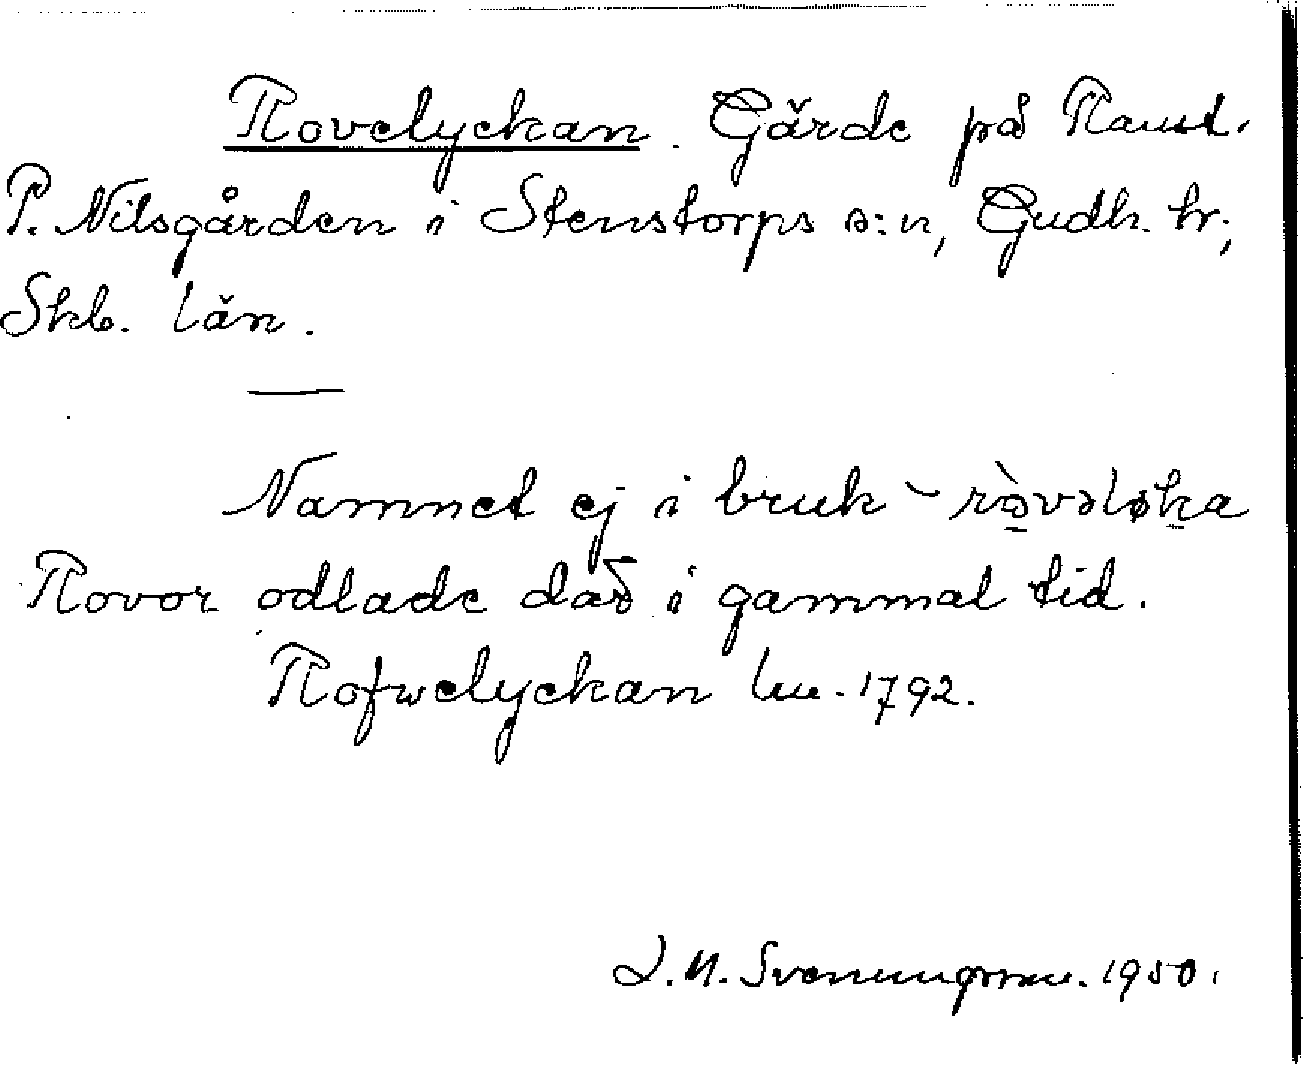 Rovelyckan. Gärde på Raml.
P. Nilsgården i Stenstorps s:n, Gudh. hr;
Skb. län.
Namnet ej i bruk – rò̱vəløḵa
Rovor odlade där i gammal tid.
Rofwelyckan 1792.
J. N. Svenungsson. 1950.